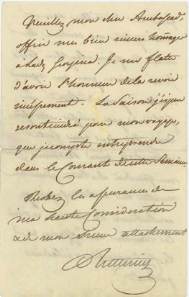 Veuillez mon cher Ambassad.
offrir mes bien sincères hommages
à Lady Je me flatte
d'avoir l'honneur de la revoir
incessamment. La saison
pour mon voyage,
que je compte entreprendre
dans le Courant de cette semaine
Recevez les assurances de
ma haute Considération
et de mon sincère attachement